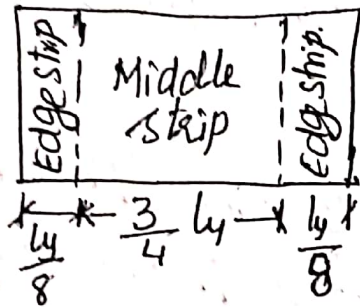 Edge strip
Middle
strip
Edge strip.
ly/8
3/4 ly
ly/8